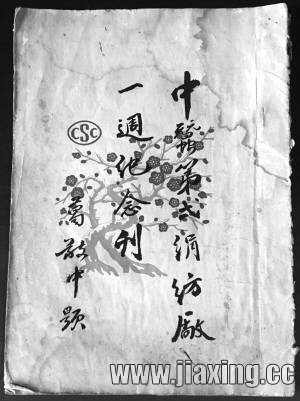 中蠶第弍絹紡廠
一週紀念刊
葛敬中題
CSC
www.jiaxing.cc